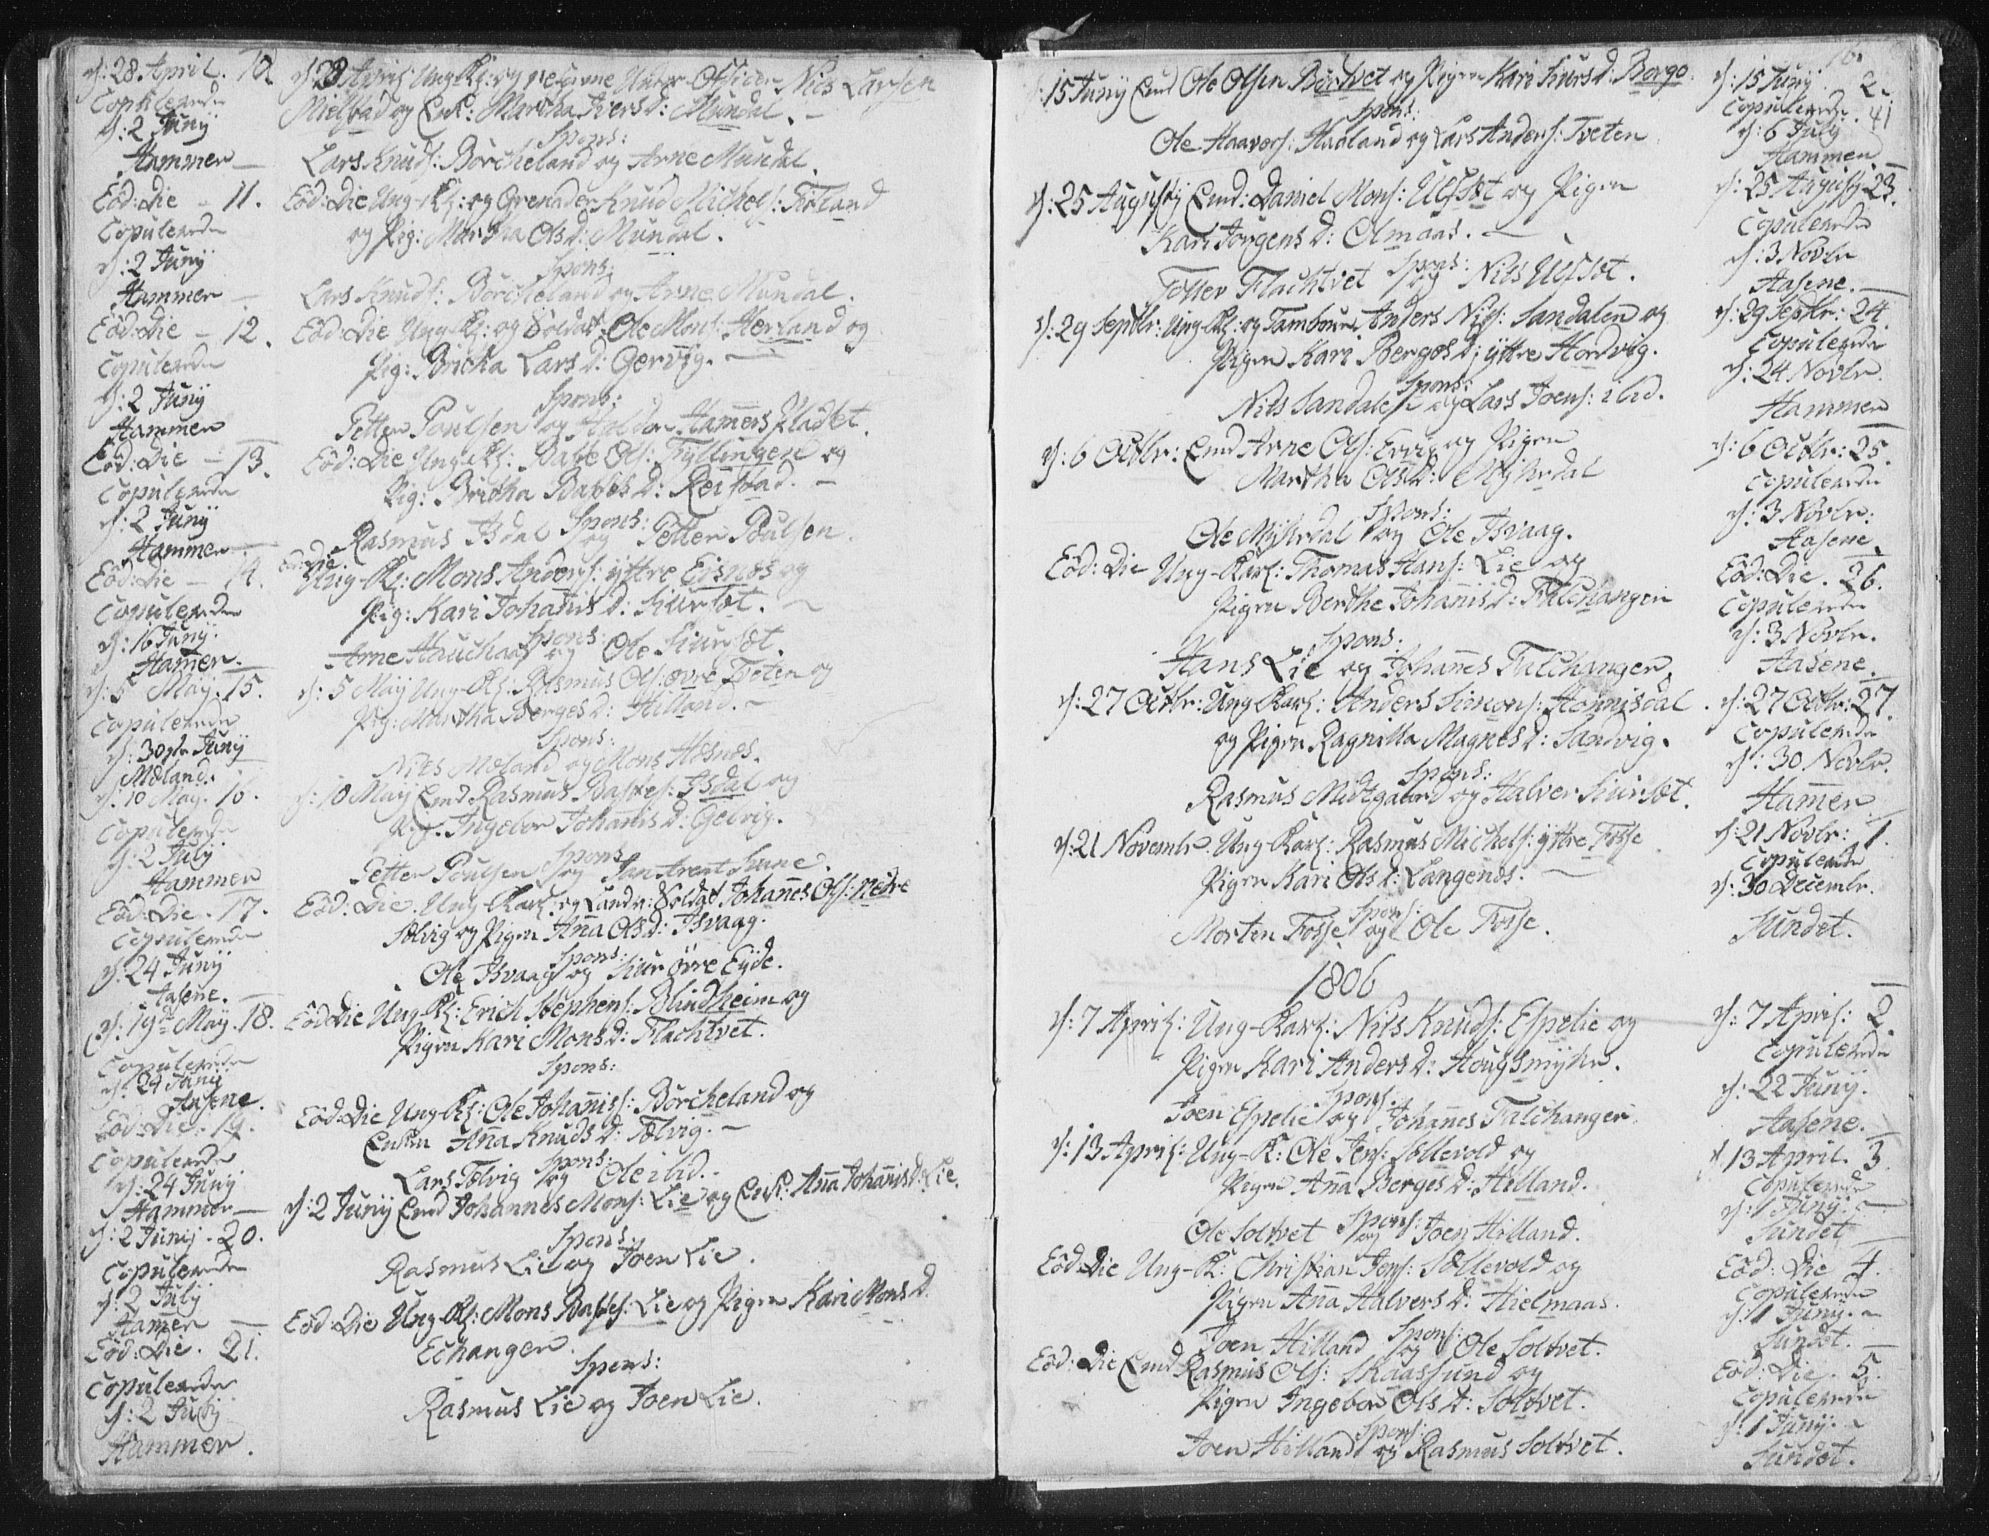 d: 28 April. 10
Copuleerede
d: 2 Junÿ
Hammer
d: 28 April Ung-Kl: og Under Officer Niels Larsen
Mielstad og Enk: Martha Ivers D: Mundal.
Spons:
Lars Knuds: Borcheland og Arne Mundal.
Eod: Die - 11.
Copuleerede
d: 2 Junÿ
Hammer
Eod: Die Ung-Kl: og Grenader Knud Michels:
og Pig: Martha Ols D: Mundal.
Spons:
Lars Knuds: Borcheland og Arne Mundal.
Eod: Die - 12.
Copuleerede
d: 2 Junÿ
Hammer
Eod: Die Ung-Kl: og Soldat Ole Mons: Herland og
Pig: Bricka Lars D: Gervig.
Spons:
Petter Poulsen og Haldor Hamers Pladset.
Eod: Die - 13.
Copuleerede
d: 2 Junÿ
Hammer
Eod: Die Ung-Kl: Baste Ols: Tÿllingen og
Pig: Britha Bastes D: Reistad.
Spons:
Rasmus Isdal og Petter Poulsen.
Eod: Die - 14.
Copuleerede
d: 16 Junÿ.
Hamer.
Eod: Die
Ung-Kl: Mons Anders: ÿttre Eisnes og
Pig: Kari Johanis D: Siursæt.
Spons:
Arne Hauchaas og Ole Siursæt.
d: 5 Maÿ. 15.
Copuleerede
d: 30 Junÿ
Mæland.
d: 5 Maÿ Ung-Kl: Rasmus Ols: øvre Tveten og
Pig: Martha Berges D: Hilland.
Spons:
Niels Mæland og Mons Hosnes.
d: 10 Maÿ. 16.
Copuleerede
d: 2 Julÿ
Hammer
d: 10 Maÿ Emd Rasmus Bastes: Isdal og
Pig: Ingebor Johanis D: Gervig.
Spons:
Petter Poulsen og Jan Arent
Eod: Die. 17.
Copuleerede
d: 24 Junÿ
Aasene.
Eod: Die. Ung-Karl: og Landv: Soldat Johannes Ols: nedre
Solvig og Pigen Anna Ols D: Isvaag.
Spons:
Ole Isvaag og Siur øvre Eÿde.
d: 19de Maÿ. 18.
Copuleerede
d: 24 Junÿ
Aasene.
Eod: Die Ung-Kl: Erich Stephens: Blindheim og
Pigen Kari Mons D: Flachtvet.
Spons:
Eod: Die. 19.
Copuleerede
d: 24 Junÿ
Hammer
Eod: Die Ung-Kl: Ole Johannis: Borcheland og
Enken Anna Knuds D: Tolvig.
Spons:
Lars Tolvig og Ole ibd.
d: 2 Junÿ. 20.
Copuleerede
d: 2 Julÿ
Hamer
d: 2 Junÿ Emd Johannes Mons: Lie og Enk: Anna Johanis D: Lie.
Spons:
Rasmus Lie og Joen Lie.
Eod: Die. 21.
Copuleerede
d: 2 Julÿ
Hammer.
Eod: Die Ung-Kl: Mons Bastes: Lie og Pigen Kari Mons D.
Echanger.
Spons:
Rasmus Lie og Joen Lie.
d: 15 Junÿ Emd Ole Olsen Bortvet og Pigen Kari Siurs D: Borge.
Spons:
Ole Haavers: Hadland og Lars Anders: Tveten
d: 15 Junÿ. 2
Copuleerede
d: 6 Julÿ
Hammer.
d: 25 Augustÿ Emd: Daniel Mons: Ulsset og Pigen
Kari Jorgens D: Olmaas.
Spons:
Flachtvet og Niels Ulsset.
d: 25 Augusÿ 23.
Copuleerede
d: 3 Novbr
Aasene.
d: 29 Septbr: Ung-Kl: og Tambour Anders Niels: Sandalen og
Pigen Kari Berges D: ÿttre Hordvig.
Spons:
Niels Sandalen og Lars Joens: ibid.
d: 29 Septbr: 24.
Copuleerede
d: 24 Novbr.
Hammer
d: 6 Octbr: Emd Arne Ols: Ervig og Pigen
Martha Ols D: Mÿhrdal
Spons:
Ole Mÿhrdal og Ole Isvaag.
d: 6 Octbr: 25.
Copuleerede
d: 3 Novbr:
Aasene.
Eod: Die Ung-Karl: Thomas Hans: Lie og
Pigen Berthe Johanis D: Falchanger
Spons:
Hans Lie og Johannes Falchanger.
Eod: Die. 26.
Copuleerede
d: 3 Novbr.
Aasene.
d: 27 Octbr: Ung Karl: Anders Simons: Hannisdal
og Pigen Ragnilla Magnes D: Sandvig.
Spons:
Rasmus Midtgaard og Halver Siursæt.
d: 27 Octbr: 27.
Copuleerede
d: 30 Novbr.
Hamer
d: 21 Novembr. Ung-Karl: Rasmus Michels: ÿttre Fosse
Pigen Kari Ols D: Langenes.
Spons:
Morten Fosse og Ole Fosse.
d: 21 Novbr: 1.
Copuleerede
d: 30 Decembr.
Sundet.
1806
d: 7 April: Ung-Karl: Niels Knuds: Espelie og
Pigen Kari Anders D: Hougsmÿhr.
Spons:
Joen Espelie og Johannes Falchanger.
d: 7 April: 2.
Copuleerede
d: 22 Junÿ.
Aasene.
d: 13 April: Ung-K: Ole Jens: Sollevold og
Pigen Anna Berges D: Hilland.
Spons:
Ole Soltvet og Joen Hilland.
d: 13 April. 3.
Copuleerede
d: 1 Junÿ.
Sundet
Eod: Die Ung-K: Christian Jens: Sollevold og
Pigen Anna Halvers D: Hielmaas.
Spons:
Joen Hilland og Ole Soltvet.
Eod: Die 4.
Copuleerede
d: 1 Junÿ.
Sundet.
Eod: Die Emd Rasmus Ols: Skaassund og
Pigen Ingebor Ols D: Soltvet.
Spons:
Joen Hilland og Rasmus Soltvet.
Eod: Die. 5.
Copuleerede
d: 1 Junÿ.
Sundet.